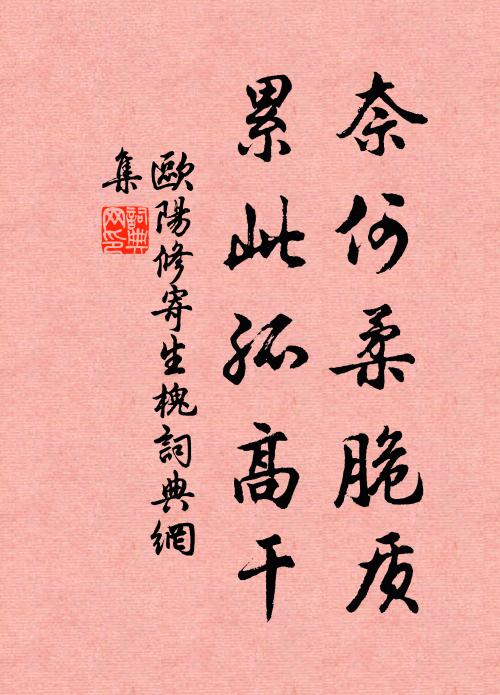 奈何柔脆质
累此孤高干
歐陽修寄生槐詞典網
集
詞典网印